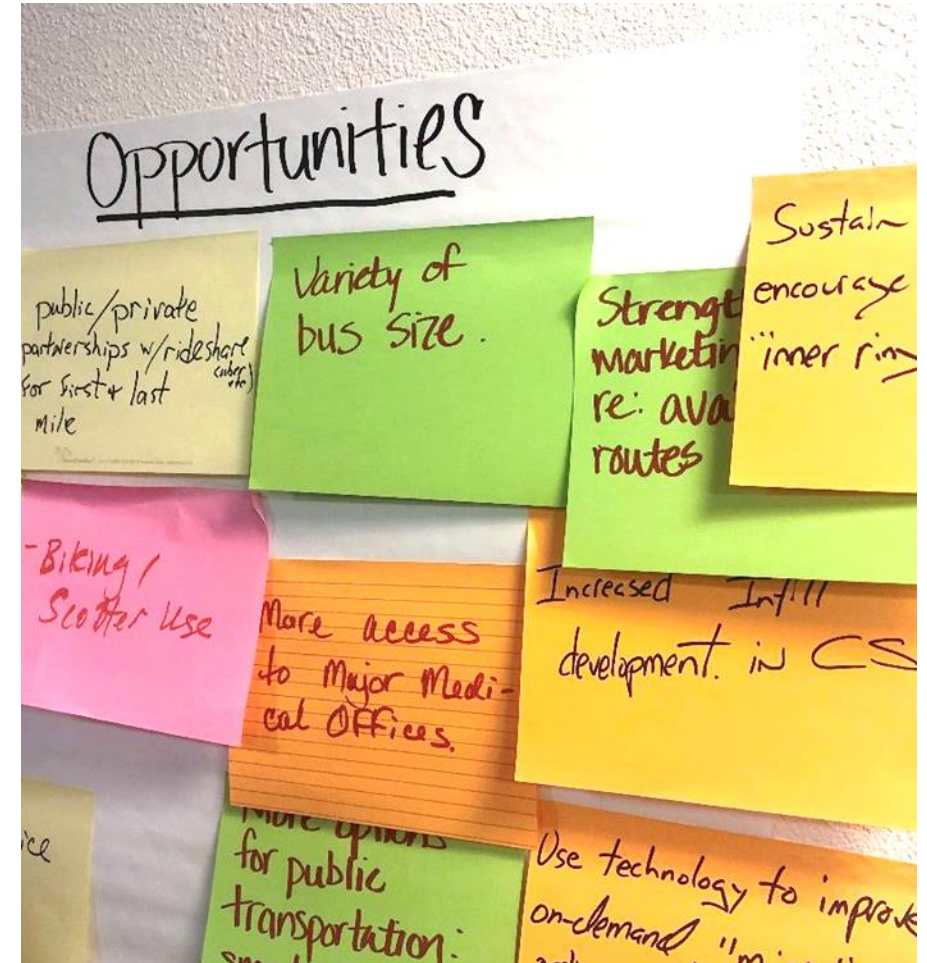 Opportunities
public/private
partnerships w/rideshare
(uber
etc)
for first & last
mile
Variety of
bus size.
Strengt
marketin
re: ava
routes
Sustain
encourage
"inner ring
-Biking/
Scooter Use
More access
to Major Medi-
cal Offices.
Increased Infill
development. in CS
ice
More options
for public
transportation:
Use technology to improve
on-demand